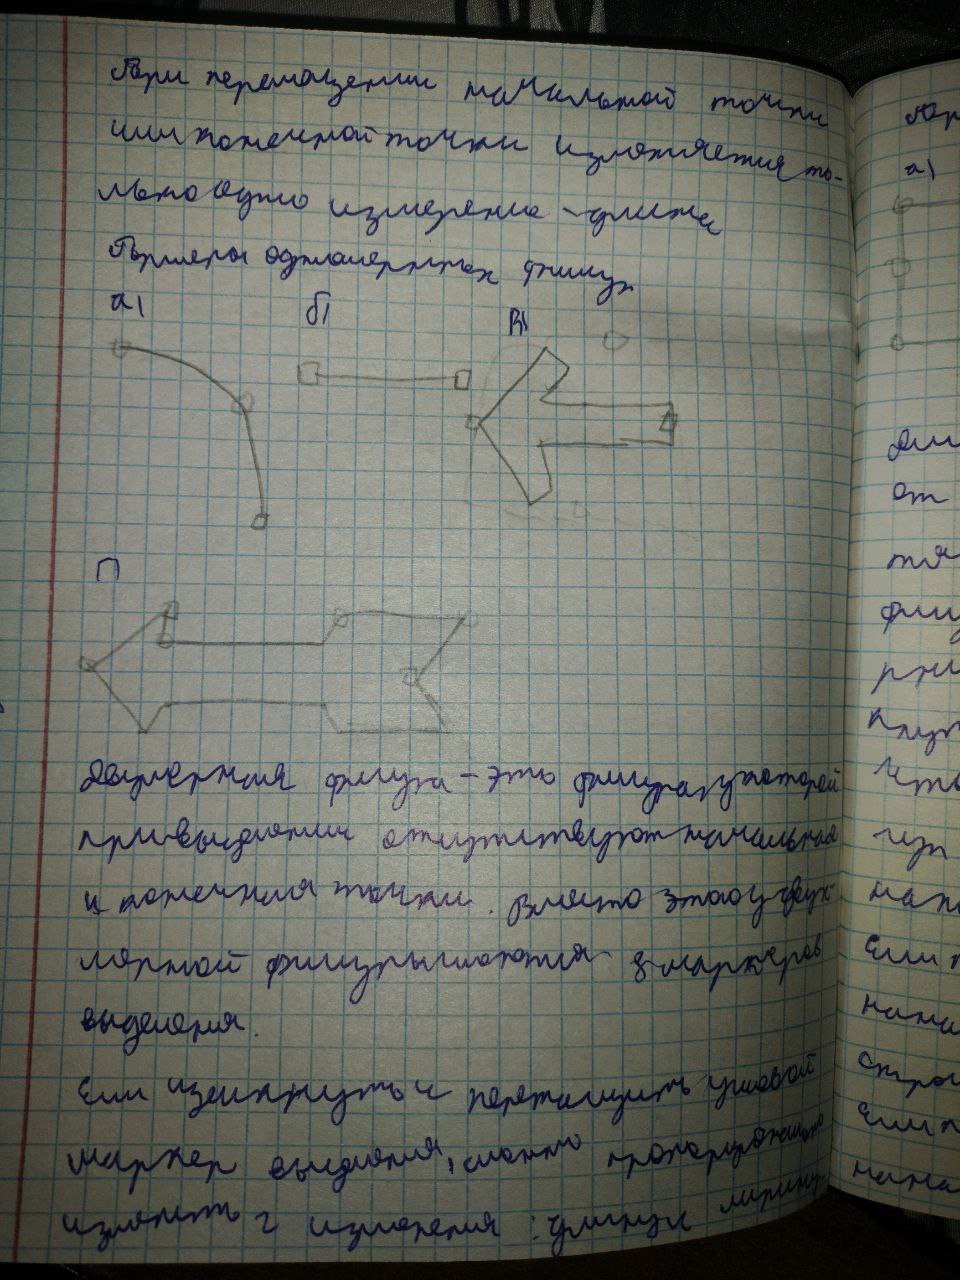 При перемещении начальной точки
или конечной точки изменяется то-
лько одно измерение - длина
Примеры одномерных фигур
а)
б)
в)
Г
Двумерная фигура - это фигура, у которой
при выделении отсутствуют начальная
и конечная точки. Вместо этого у двух-
мерной фигуры имеются 8 маркеров
выделения.
Если щелкнуть и перетащить угловой
маркер выделения, можно пропорционально
изменить 2 измерения: длину и ширину.
Пр
а)
Дли
от
тя
фигу
рни
Что
нача
Если